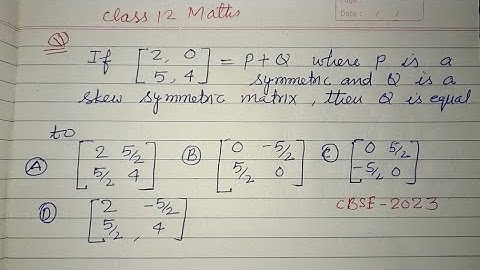 Page :
Date : / /
Class 12 Maths
Q) If [2, 0
5, 4] = P + Q where P is a
symmetric and Q is a
skew symmetric matrix, then Q is equal
to
A [2 5/2
5/2 4] B [0 -5/2
5/2 0] C [0 5/2
-5/2 0]
D [2 -5/2
5/2, 4] CBSE-2023